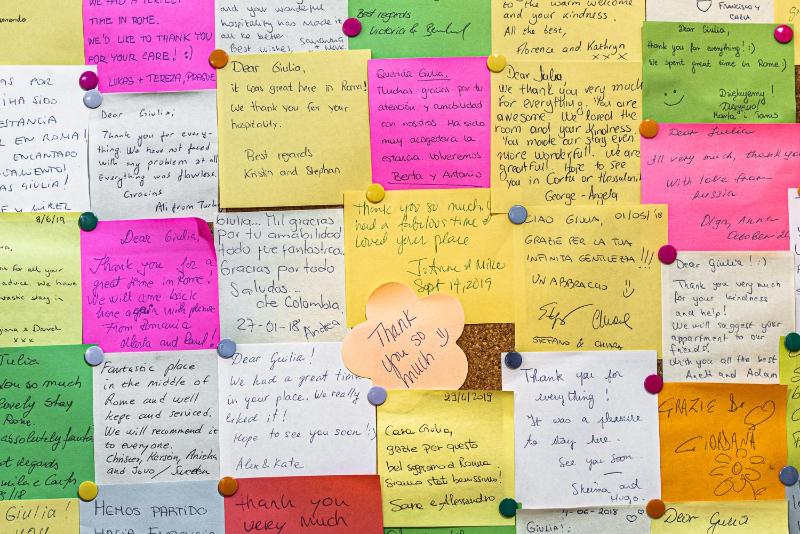 WE HAD A PERFECT
TIME IN ROME.
WE'D LIKE TO THANK YOU
FOR YOUR CARE! :)
LUKAS + TEREZA, PRAGUE
and you wonderful
hospitality has made it
all be better
Best wishes,
Best regards
the warm welcome
and your kindness.
All the best,
Florence and Kathryn
xxx
FRANCISCO y
CARLA
Dear Giulia,
thank you for everything! :)
We spent great time in Rome :)
Dziękujemy!
Děkujeme!
POR
HA SIDO
ESTANCIA
EN ROMA!
ENCANTADO
GIULIA!
Dear Giulia,
Thank you for every-
thing. We have not faced
with any problem at all
Everything was flawless.
Gracias
Ali from
Dear Giulia,
it was great here in Rome!
We thank you for your
hospitality.
Best regards
Kristin and Stephan
Querida Giulia,
Muchas gracias por tu
atención y amabilidad
con nosotros. Ha sido
muy acogedora la
estancia. Volveremos
Berta y Antonio
Dear Julia
We thank you very much
for everything. You are
awesome. We loved the
room and your kindness.
You made our stay even
more wonderful. We are
greatful. Hope to see
you in Corfu or
George - Angela
Dear Julia
very much, thank you
With love from
Russia
Olga, Anna
October
8/6/19
for all your
advice. We have
stay in
and David
xxx
Dear Giulia,
Thank you for a
great time in Rome!
We will come back
here again with
From Romania
and
Giulia... Mil gracias
por tu amabilidad
todo fue fantastico.
Gracias por todo
Saludos...
de Colombia.
27-01-18 Andrea
Thank you so much! I
had a fabulous time &
loved your place
JoAnne & Mike
Sept 14, 2019
CIAO GIULIA, 01/05/18
GRAZIE PER LA TUA
INFINITA GENTILEZZA!!!
UN ABBRACCIO
STEFANO & CHIARA
Dear Giulia! :)
Thank you very much
for your kindness
and help!
We will suggest your
appartment to our
friends.
Wish you all the best
and Adam
Thank
you so
much
Julia
you so much
lovely stay
Rome.
absolutely
Regards
Fantastic place
in the middle of
Rome and well
kept and serviced.
We will recommend it
to everyone.
Sweden
Dear Giulia!
We had a great time
in your place. We really
liked it!
Hope to see you soon!
Alex & Kate
23/4/2019
Cara Giulia,
grazie per questo
bel soggiorno a Roma
Siamo stati benissimo!
Sara e Alessandro
Thank you for
everything!
It was a pleasure
to stay here.
See you soon
and
Hugo.
GRAZIE DI
GIORDANA
Giulia!
you
HEMOS PARTIDO
HACIA
thank you
very much
-06-2018
GIULIA!
Dear Giulia